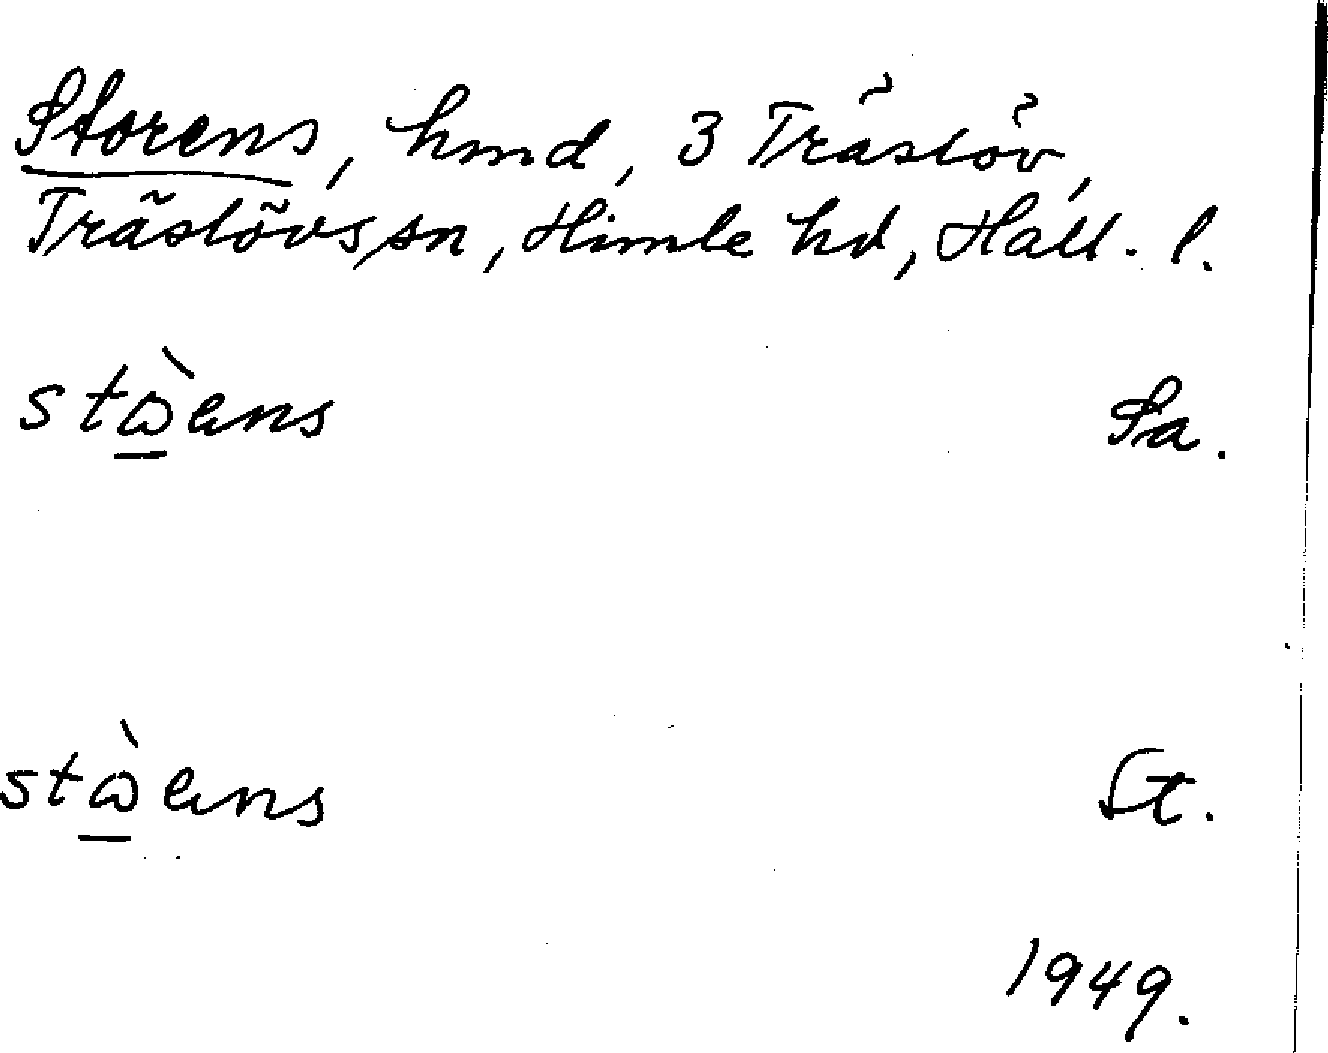 Storens, hmd, 3 Träslöv,
Träslövs sn, Himle hd, Hall. l.
stὼens Sa.
stὼens St.
1949.